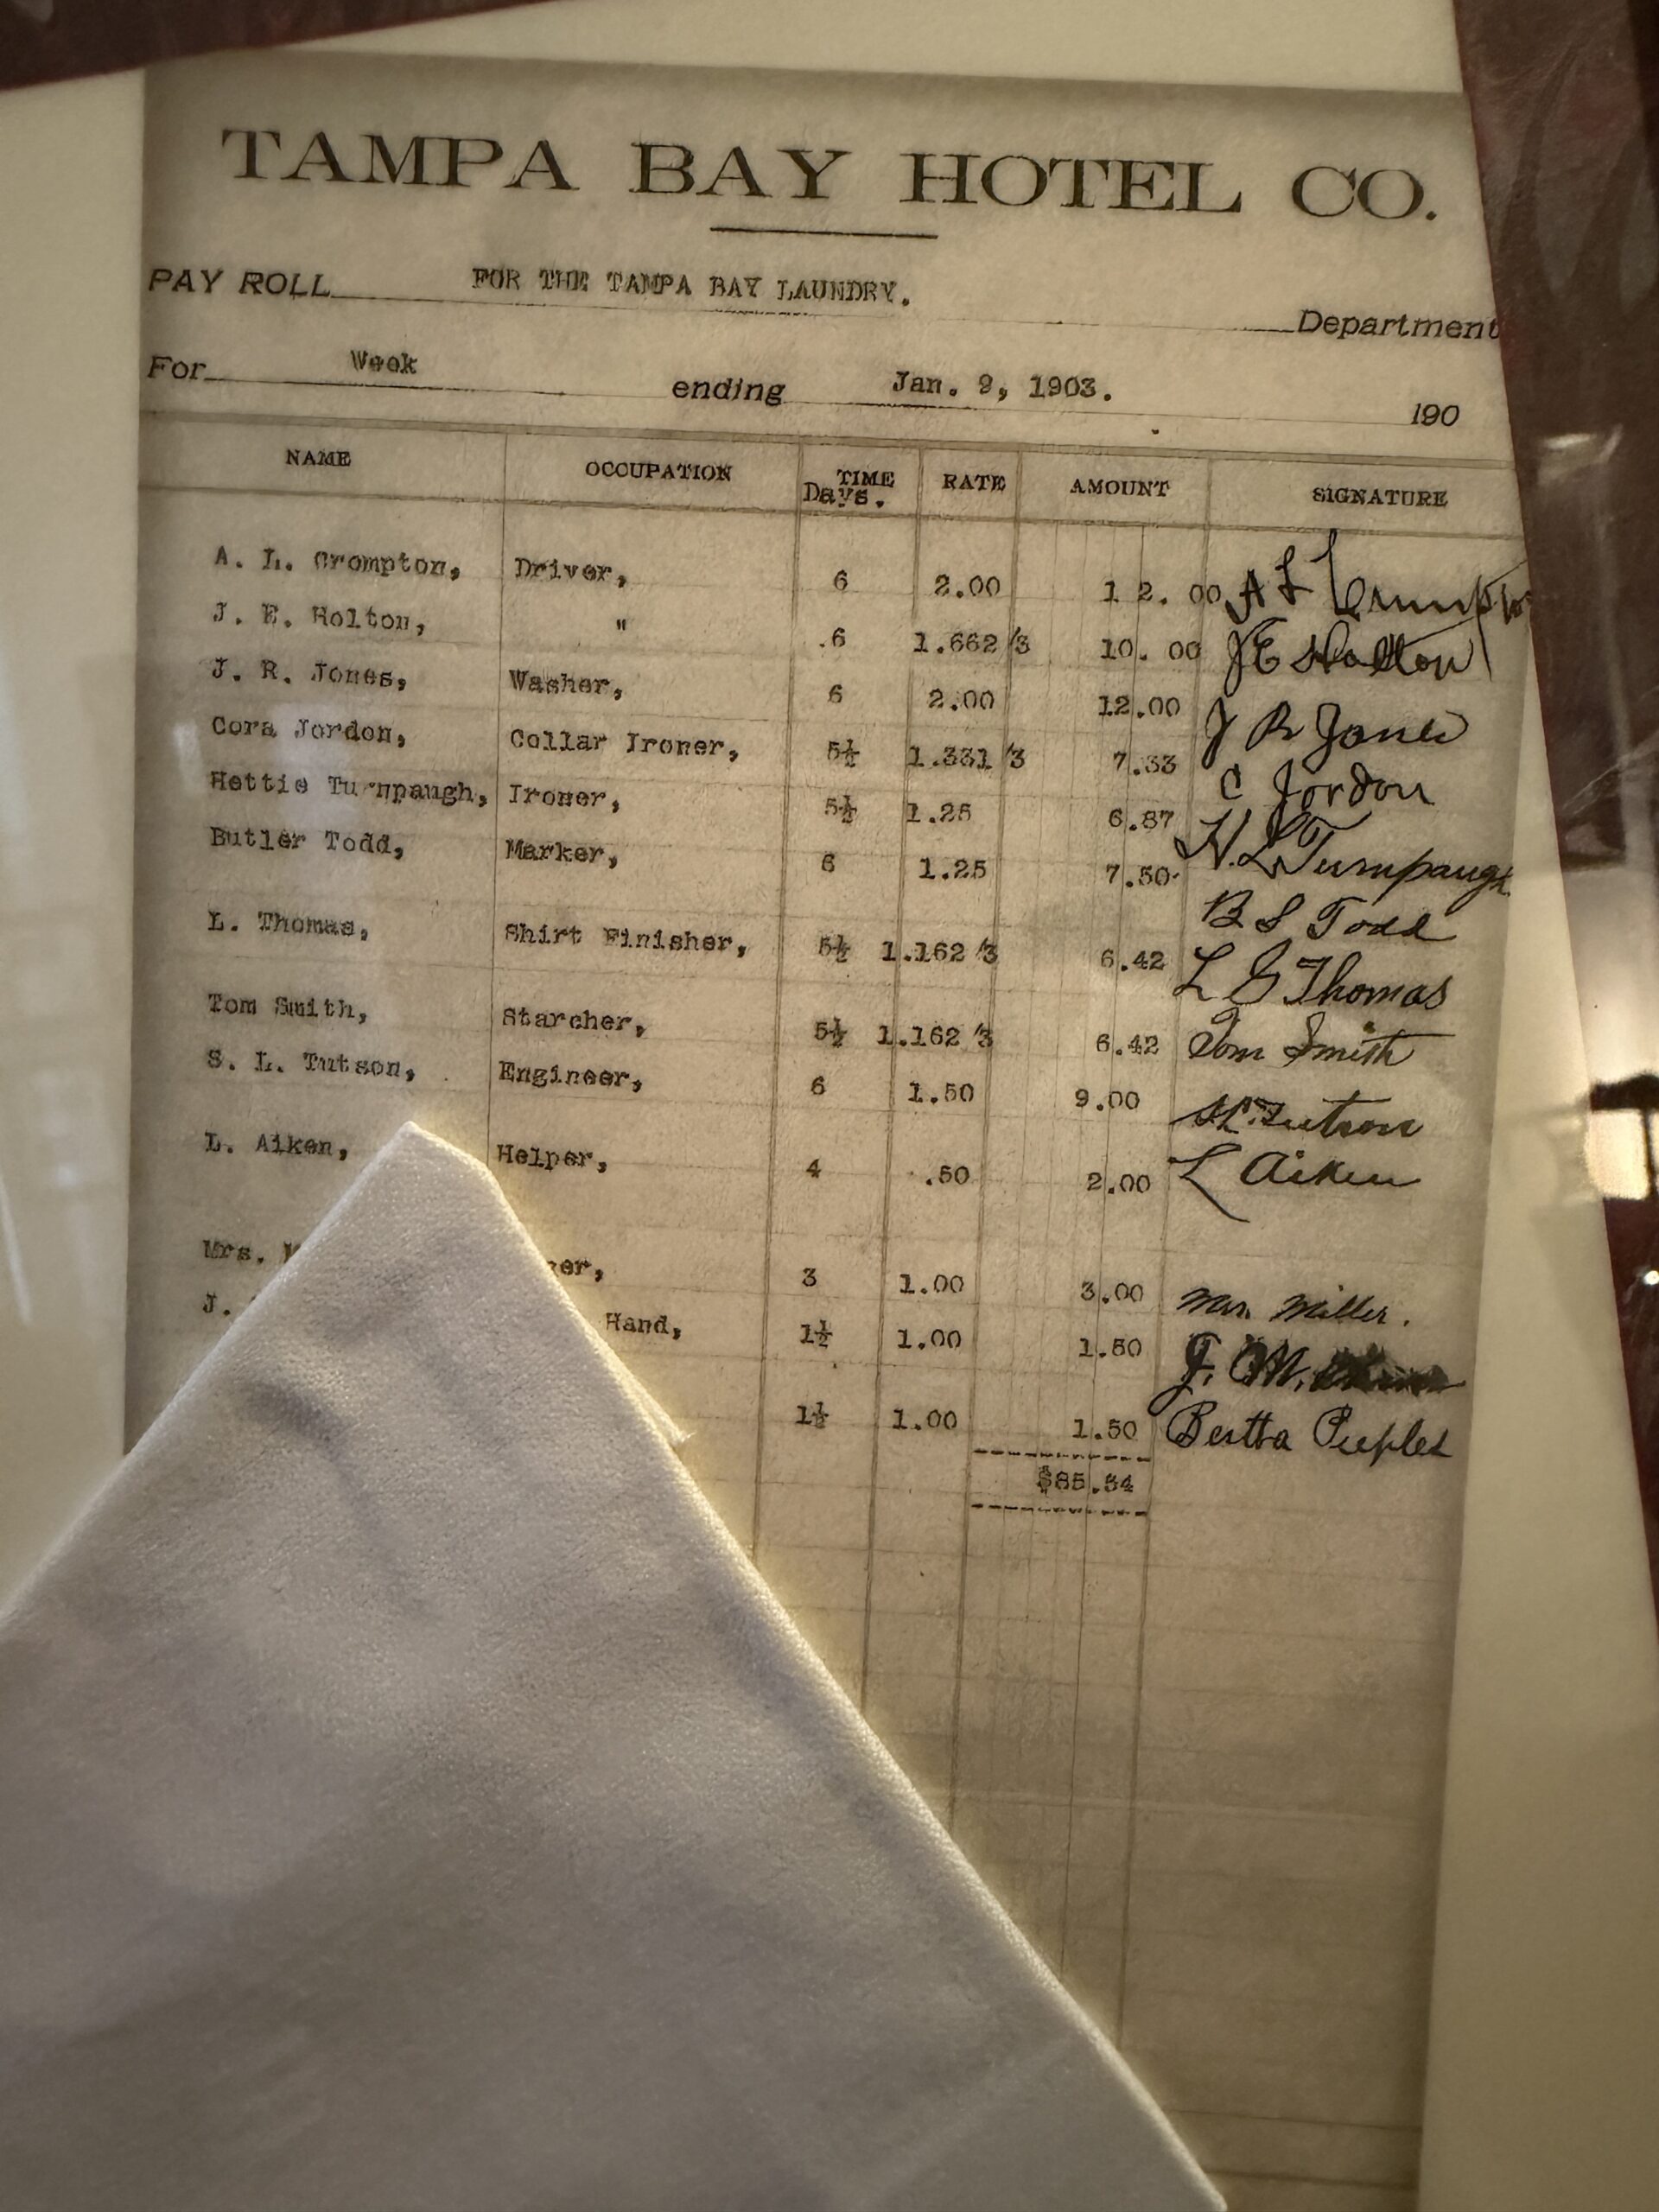 TAMPA BAY HOTEL CO.
PAY ROLL FOR THE TAMPA BAY LAUNDRY. Department
For Week ending Jan. 9, 1903. 190
NAME OCCUPATION TIME Days. RATE AMOUNT SIGNATURE
A. L. Crompton, Driver, 6 2.00 12.00 A L Crumpton
J. E. Holton, " .6 1.662/3 10.00 J E Holton
J. R. Jones, Washer, 6 2.00 12.00 J R Jones
Cora Jordon, Collar Ironer, 5½ 1.331/3 7.33 C Jordon
Hettie Turnpaugh, Ironer, 5½ 1.25 6.87 H. L. Turnpaugh
Butler Todd, Marker, 6 1.25 7.50 B S Todd
L. Thomas, Shirt Finisher, 5½ 1.162/3 6.42 L S Thomas
Tom Smith, Starcher, 5½ 1.162/3 6.42 Tom Smith
S. L. Tutson, Engineer, 6 1.50 9.00 S L Tutson
L. Aiken, Helper, 4 .50 2.00 L Aiken
Mrs. ner, 3 1.00 3.00 Mrs. Miller.
J. Hand, 1½ 1.00 1.50 J. M.
1½ 1.00 1.50 Bertha Peeples
$85.54